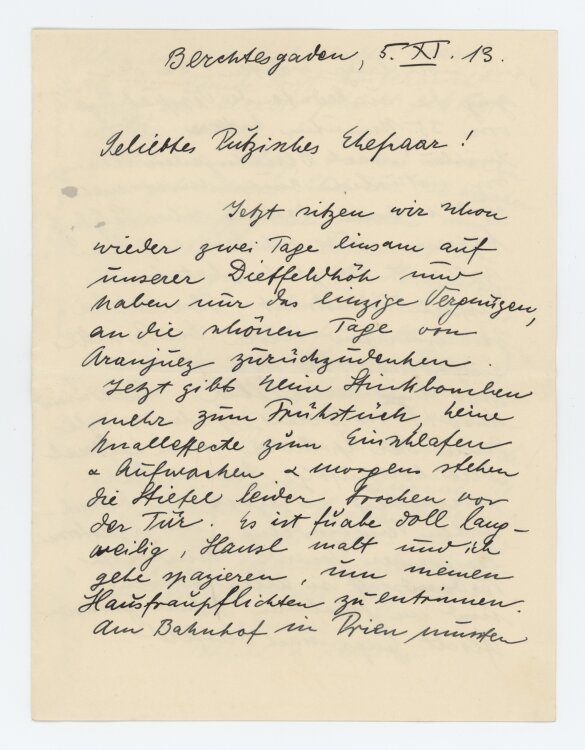 Berchtesgaden, 5. XI. 13.
Geliebtes Putzisches Ehepaar!
Jetzt sitzen wir schon
wieder zwei Tage einsam auf
unserer Dietfeldhöh und
haben nur das einzige Vergnügen,
an die schönen Tage von
Aranjuez zurückzudenken.
Jetzt gibts keine Stinkbomben
mehr zum Frühstück, keine
Knalleffecte zum Einschlafen
& Aufwachen & morgens stehen
die Stiefel leider trocken vor
der Tür. Es ist doll lang-
weilig, Hansl malt und ich
gehe spazieren, um meinen
Hausfraupflichten zu entrinnen.
Am Bahnhof in Prien mussten